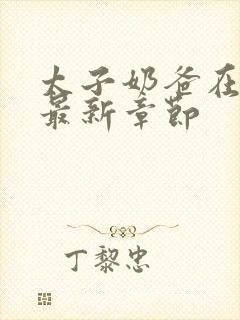 太子奶爸在
最新章节
丁黎忠